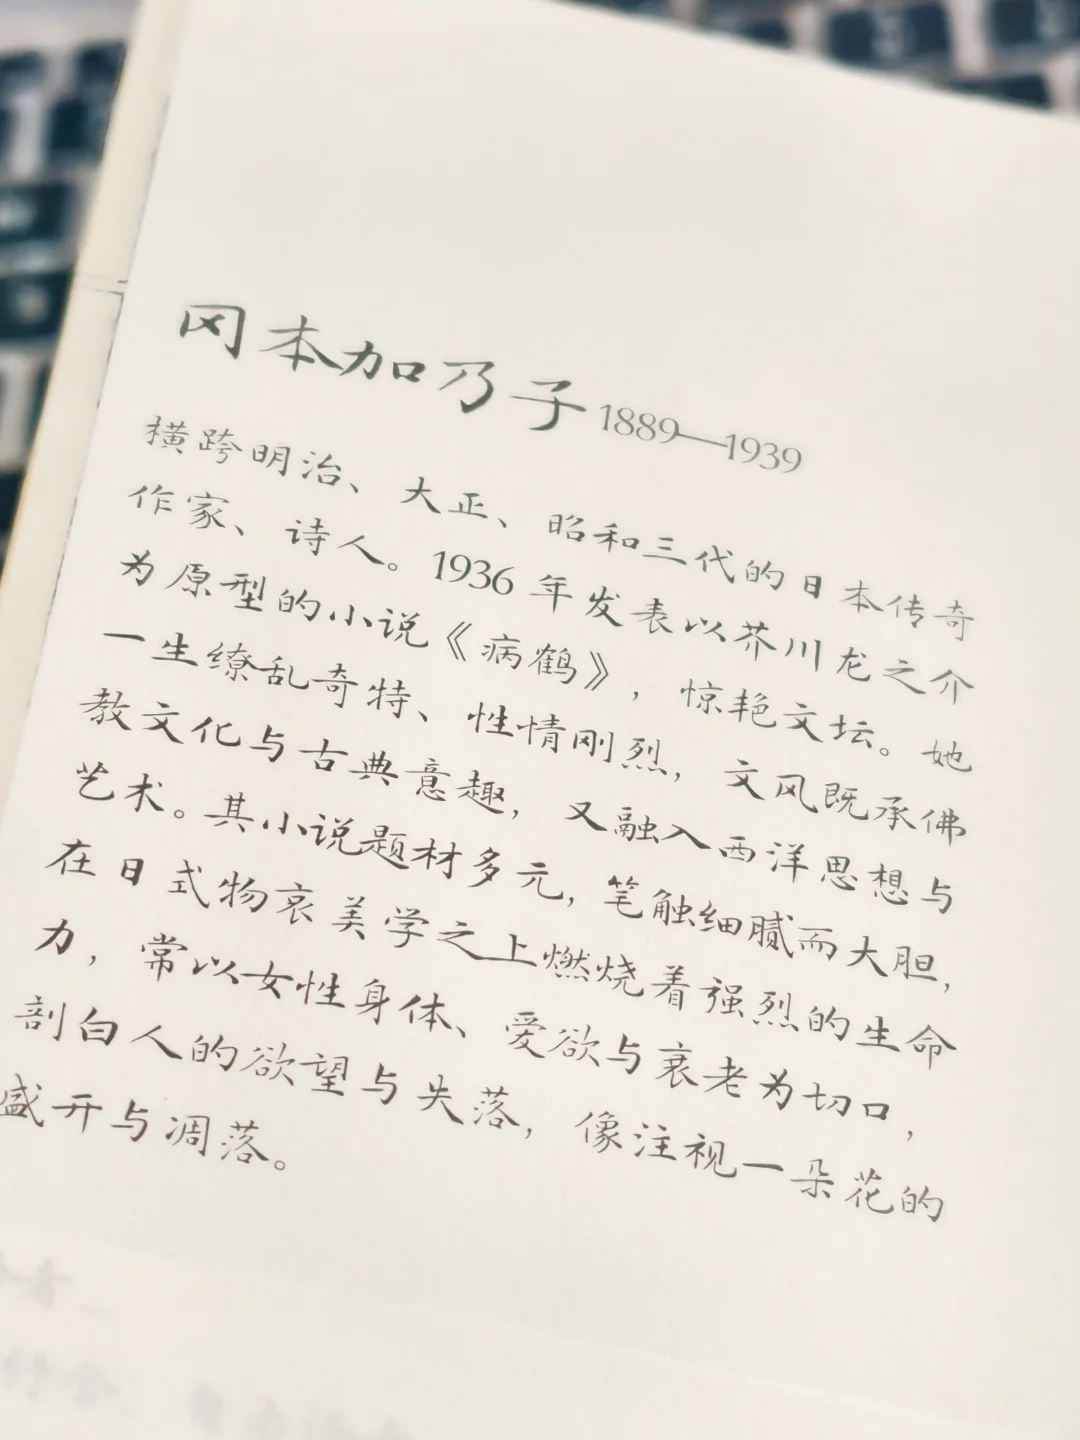 冈本加乃子 1889—1939
横跨明治、大正、昭和三代的日本传奇
作家、诗人。1936 年发表以芥川龙之介
为原型的小说《病鹤》，惊艳文坛。她
一生缭乱奇特、性情刚烈，文风既承佛
教文化与古典意趣，又融入西洋思想与
艺术。其小说题材多元，笔触细腻而大胆，
在日式物哀美学之上燃烧着强烈的生命
力，常以女性身体、爱欲与衰老为切口，
剖白人的欲望与失落，像注视一朵花的
盛开与凋落。